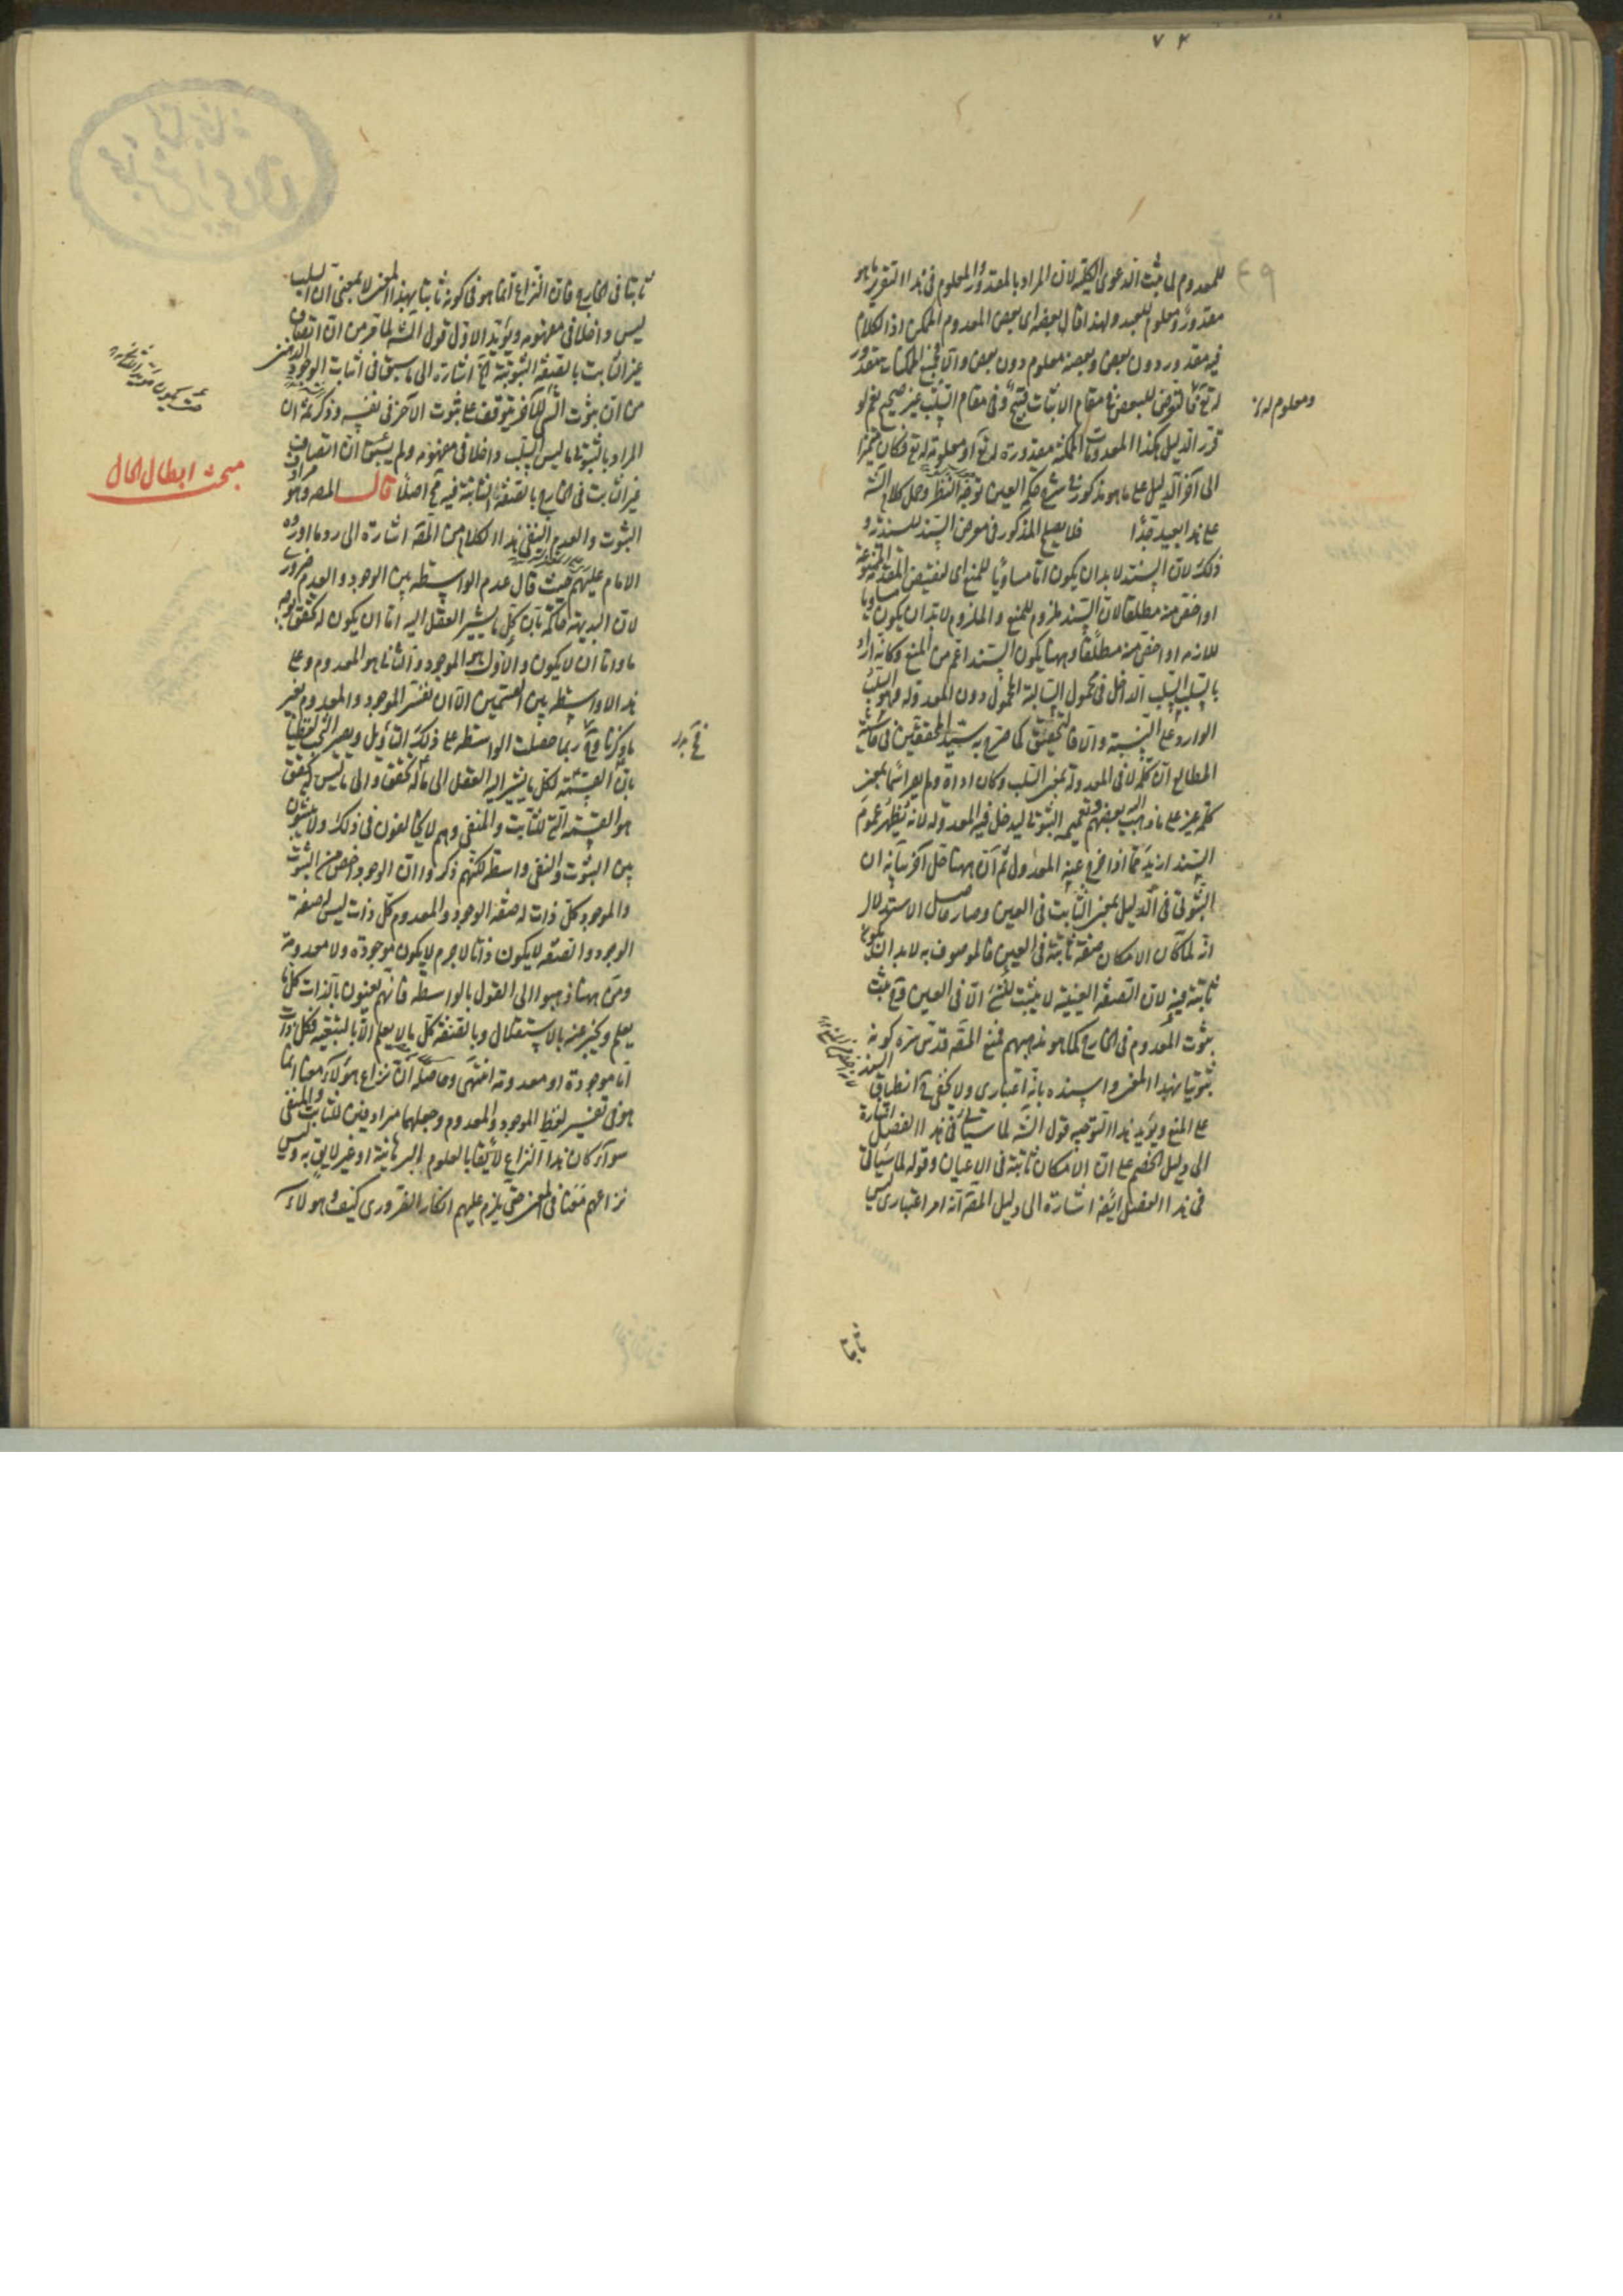 ٧٤
٤٩
للمعدوم لما ثبت الدعوى الكلية لان المراد بالمقدور والمعلوم فى هذا التقرير ما هو
مقدور ومعلوم للعبد ولهذا قال بعضه اى بعض المعدوم الممكن اذ الكلام
فيه مقدور دون بعض وبعضه معلوم دون بعض والا فجميع الممكنات مقدور
له تع فالتعرض للبعض فى مقام الاثبات قبيح وفى مقام السلب غير صحيح نعم لو
ومعلوم له
قرر الدليل هكذا المعدومات الممكنة مقدورة له تع او معلومة له تع فكان متميزا
الى آخر الدليل على ما هو مذكور فى شرح حكمة العين توجه النظر وحمل كلام الش
على هذا بعيد جدا فلا يصلح المذكور فى معرض السند للسندية و
ذلك لان السند لا بد ان يكون اما مساويا للمنع اى لنقيض المقدمة الممنوعة
او اخص منه مطلقا لان السند ملزوم للمنع والملزوم لا بد ان يكون مساويا
للازمه او اخص منه مطلقا وههنا يكون السند اعم من المنع وكانه اراد
بالسلب السلب الداخل فى محمول السالبة المحمول دون المعدولة وهو السلب
الوارد على النسبة والا فالتحقيق كما صرح به سيد المحققين فى حاشية
المطالع ان كلمة لا فى المعدولة بمعنى السلب وكان اداة ولم يعد اسما بمعنى
كلمة غير على ما ذهب اليه بعضهم وتعميم الثبوتى ليدخل فيه المعدولة لانه يظهر عموم
السند ازيد مما اذا خرج عنه المعدول ثم ان ههنا حل آخر بيانه ان
الثبوتى فى الدليل بمعنى الثابت فى العين وصار حاصل الاستدلال
انه لما كان الامكان صفة ثابتة فى العين فالموصوف به لا بد ان يكون
ثابتة فيه لان الصفة العينية لا يثبت للشئ الا فى العين وح يثبت
ثبوت المعدوم فى الخارج كما هو مذهبهم فمنع المص قدس سره كونه
ثبوتيا بهذا المعنى واسنده بانه اعتبارى ولا يخفى ح انطباق السند
على المنع ويؤيد هذا التوجيه قول الش لما سيأتى فى هذا الفصل اشارة
الى دليل الخصم على ان الامكان ثابتة فى الاعيان وقوله لما سيأتى
فى هذا الفصل ايضا اشارة الى دليل المص انه امر اعتبارى ليس
ثابتا
ثابتا فى الخارج فان النزاع انما هو فى كونه ثابتا بهذا المعنى لا بمعنى ان السلب
ليس داخلا فى مفهومه ويؤيد الاول قول الش لما مر من ان اتصاف
غير الثابت بالصفة الثبوتية الخ اشارة الى ما سبق فى اثبات الوجود الذهنى
من ان ثبوت الشئ للآخر يتوقف على ثبوت الآخر فى نفسه وذكر ثمة ان
المراد بالثبوتى ما ليس السلب داخلا فى مفهومه ولم يسبق ان اتصاف
غير الثابت فى الخارج بالصفة الثابتة فيه مح اصلا قال المص وهو مرادف
مبحث ابطال الحال
الثبوت والعدم النفى هذا الكلام من المص اشارة الى رد ما اورده
الامام عليهم حيث قال عدم الواسطة بين الوجود والعدم ضرورى
لان البديهة حاكمة بان كل ما يشير العقل اليه اما ان يكون له تحقق بوجه
ما واما ان لا يكون والاول هو الموجود والثانى هو المعدوم وعلى
هذا لا واسطة بين القسمين الا ان نفسر الموجود والمعدوم بغير
ما ذكرنا وح ربما حصلت الواسطة على ذلك التأويل ويصير البحث لفظيا
بان القسمة لكل ما يشير اليه العقل الى ما له تحقق والى ما ليس له تحقق
هو القسمة الى الثابت والمنفى وهم لا يخالفون فى ذلك ولا يثبتون
بين الثبوت والنفى واسطة لكنهم ذكروا ان الوجود اخص من الثبوت
والموجود كل ذات له صفة الوجود والمعدوم كل ذات ليس له صفة
الوجود والصفة لا يكون ذاتا لا جرم لا يكون موجودة ولا معدومة
ومن ههنا ذهبوا الى القول بالواسطة فانهم يعنون بالذات كل ما
يعلم ويخبر عنه بالاستقلال وبالصفة كل ما لا يعلم الا بالتبعية فكل ذات
اما موجودة او معدومة انتهى وحاصله ان نزاع هؤلاء معنا انما
هو فى تفسير لفظ الموجود والمعدوم وجعلهما مرادفين للثابت والمنفى
سواء كان هذا النزاع لايقا بالعلوم البرهانية او غير لايق به وليس
نزاعهم معنا فى المعنى حتى يلزم عليهم انكار الضرورى كيف وهؤلاء